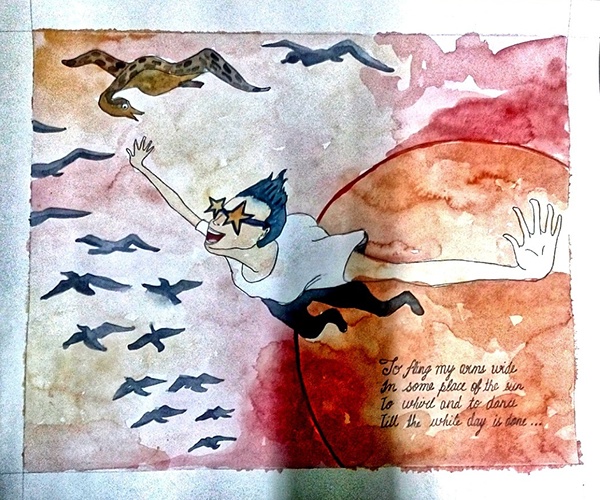 To fling my arms wide
In some place of the sun
To whirl and to dance
Till the white day is done...